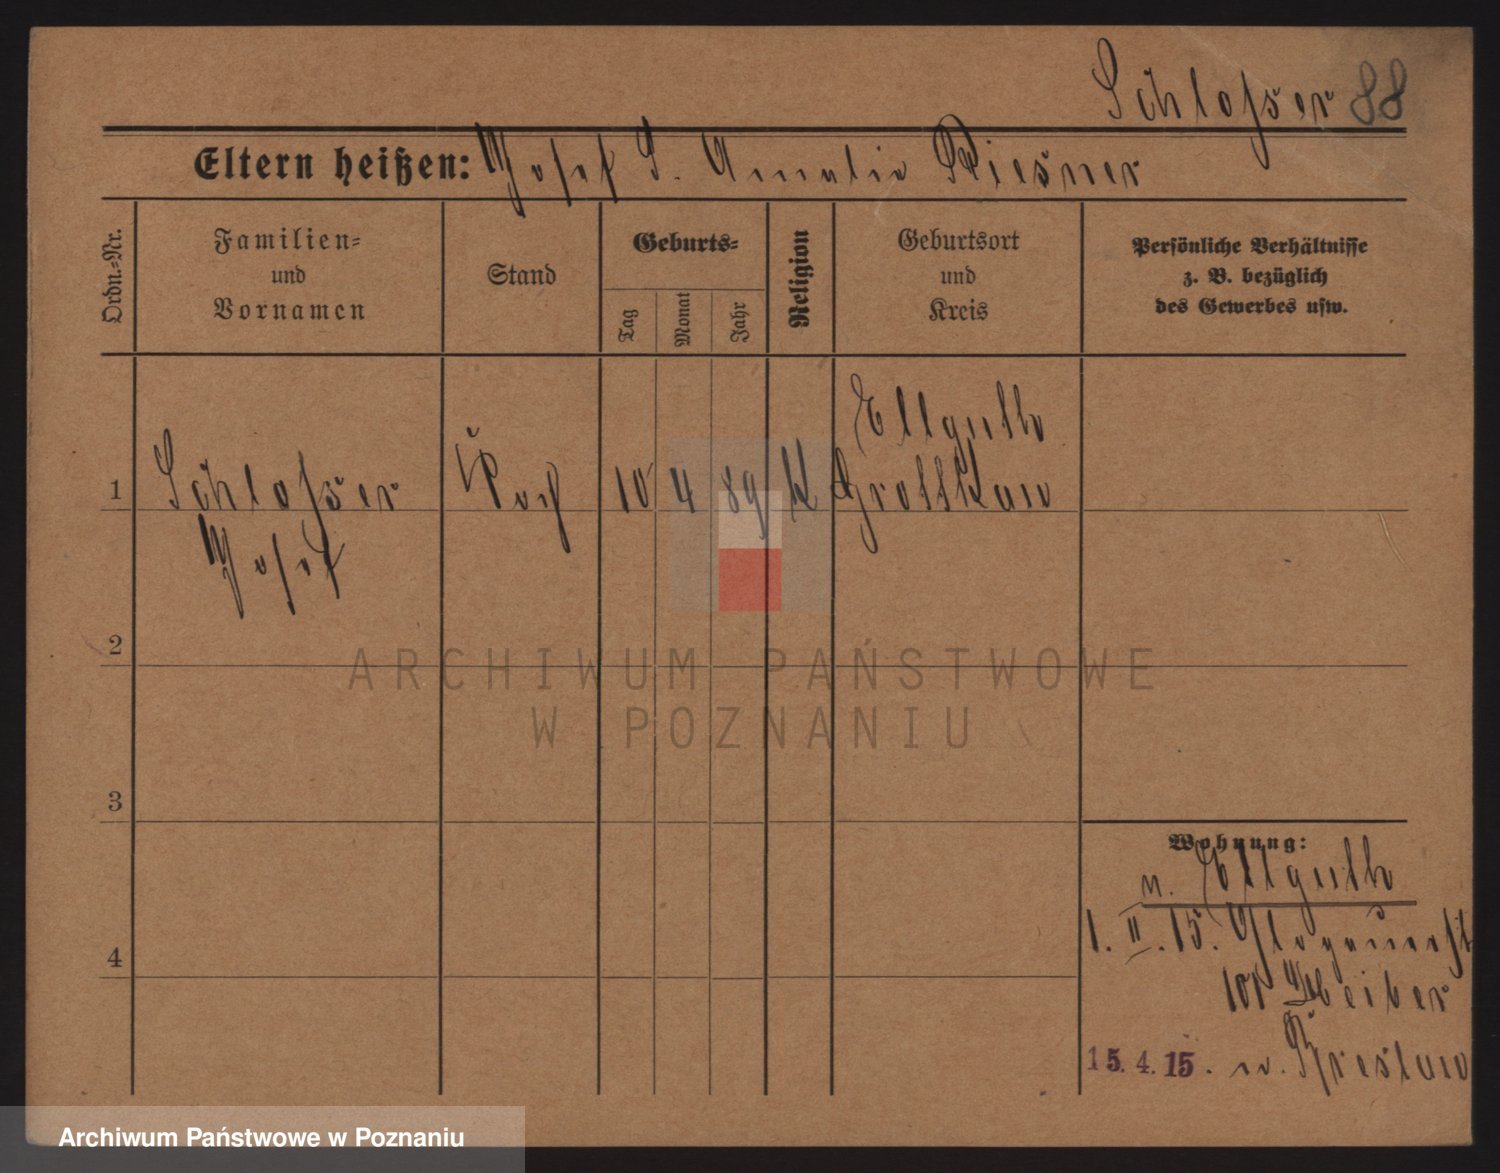 Schlosser 88
Eltern heißen: Josef S. Amalie Riesner
Ordn.-Nr.
Familien-
und
Vornamen
Stand
Geburts-
Tag
Monat
Jahr
Religion
Geburtsort
und
Kreis
Persönliche Verhältnisse
z. B. bezüglich
des Gewerbes usw.
1
Schlosser
Josef
10 4 89 K
Ellguth
Grottkau
2
ARCHIWUM PAŃSTWOWE
W POZNANIU
3
Wohnung:
n. Ellguth
1. II. 15. Glogauerst
101
4
15. 4. 15. n. Breslau
Archiwum Państwowe w Poznaniu